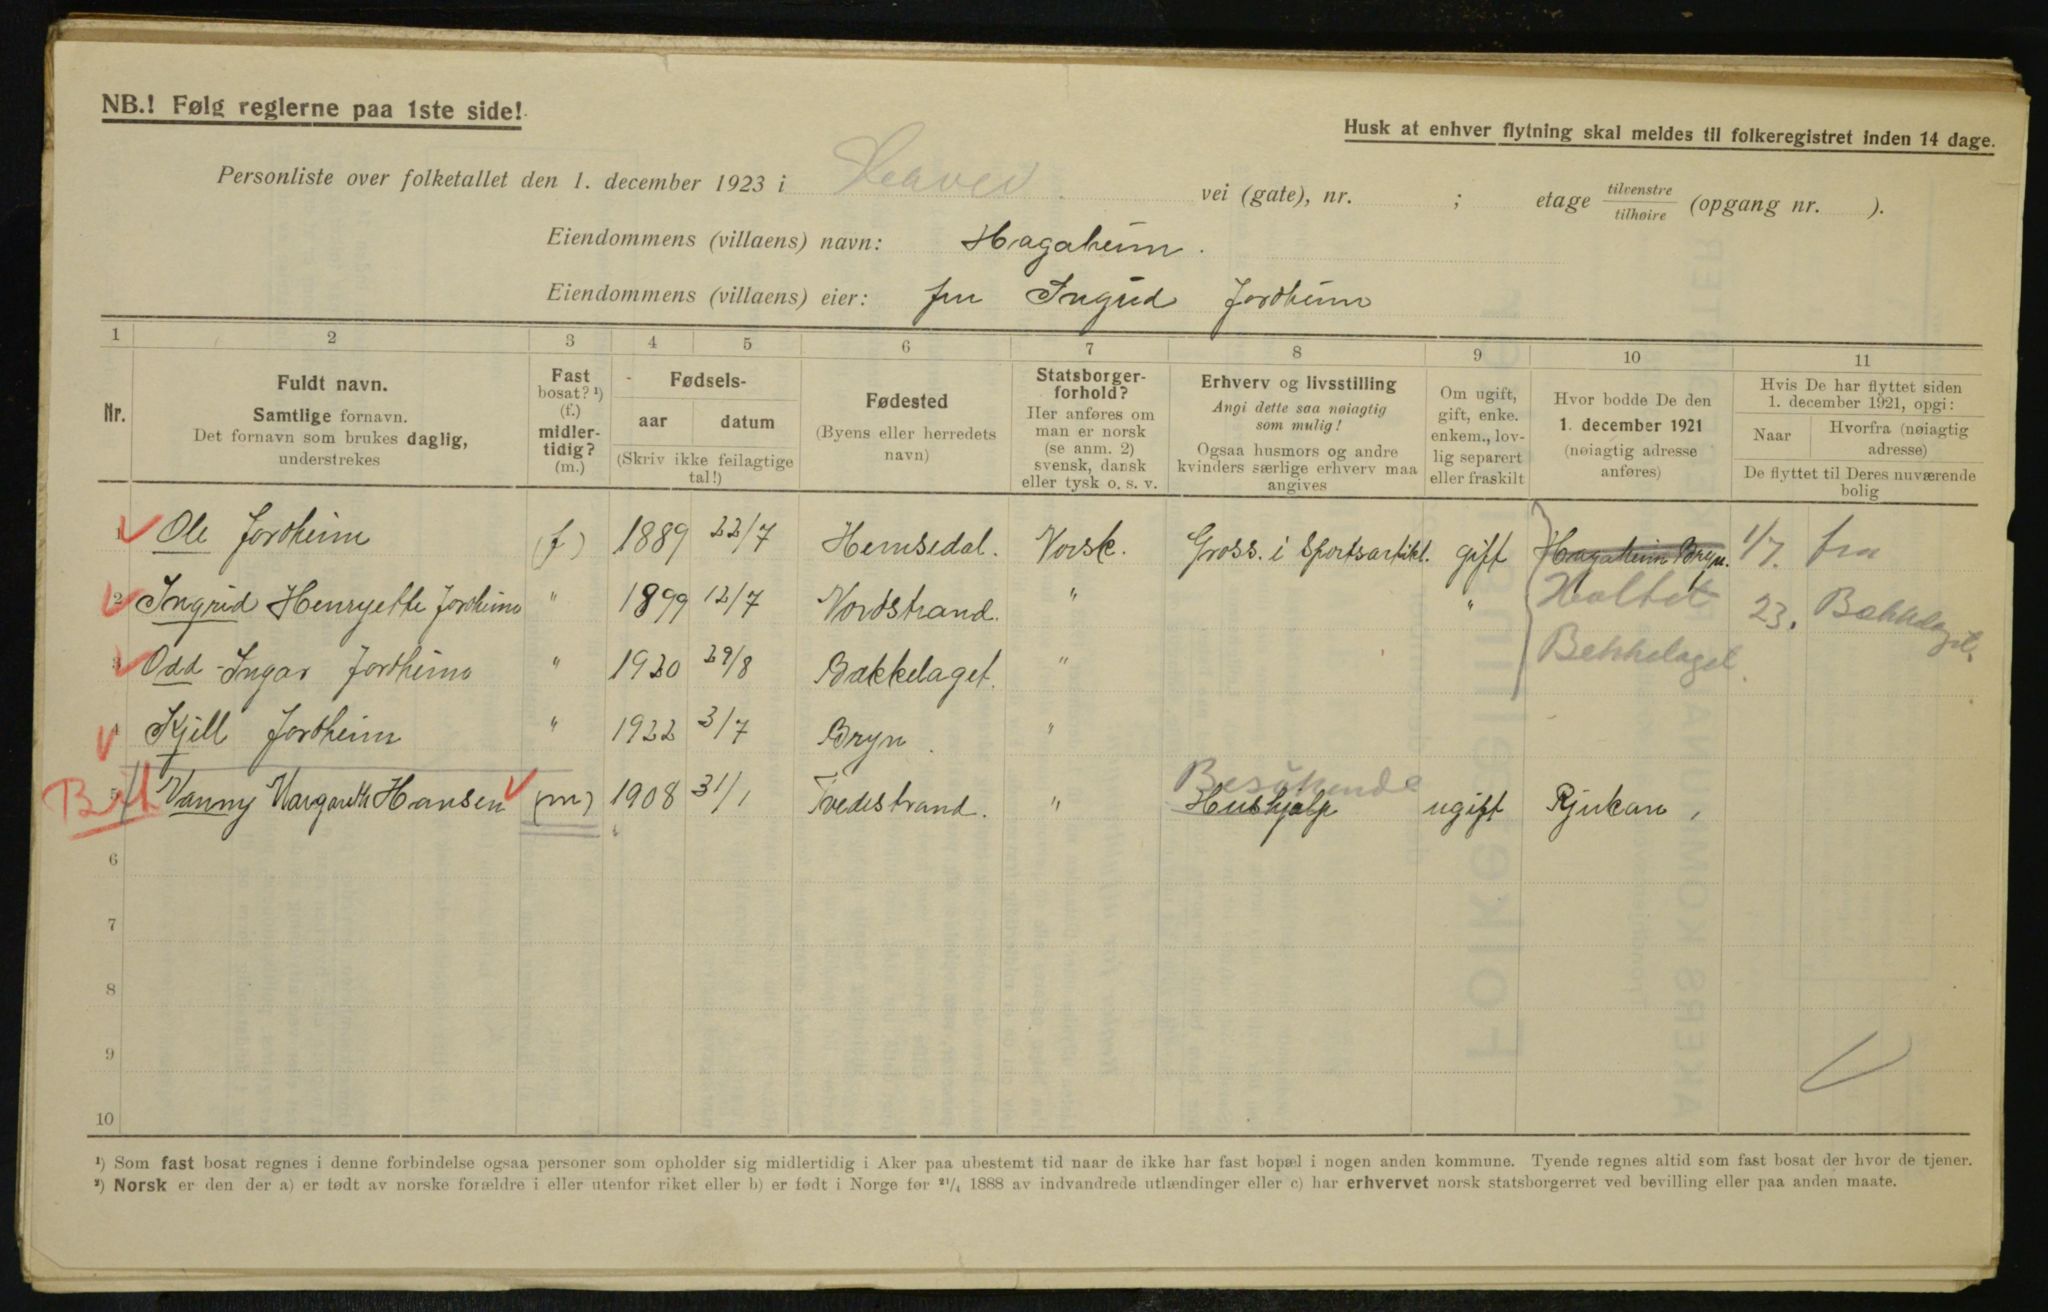 NB.! Følg reglerne paa 1ste side!
Husk at enhver flytning skal meldes til folkeregistret inden 14 dage.
Personliste over folketallet den 1. december 1923 i vei (gate), nr. ; etage tilvenstre / tilhøire (opgang nr. ).
Eiendommens (villaens) navn: Hagaheim.
Eiendommens (villaens) eier: fru Ingrid Jordheim
1 2 3 4 5 6 7 8 9 10 11
Nr.
Fuldt navn.
Samtlige fornavn.
Det fornavn som brukes daglig,
understrekes
Fast
bosat? ¹)
(f.)
midler-
tidig?
(m.)
Fødsels-
aar datum
(Skriv ikke feilagtige
tal!)
Fødested
(Byens eller herredets
navn)
Statsborger-
forhold?
Her anføres om
man er norsk
(se anm. 2)
svensk, dansk
eller tysk o. s. v.
Erhverv og livsstilling
Angi dette saa nøiagtig
som mulig!
Ogsaa husmors og andre
kvinders særlige erhverv maa
angives
Om ugift,
gift, enke.
enkem., lov-
lig separert
eller fraskilt
Hvor bodde De den
1. december 1921
(nøiagtig adresse
anføres)
Hvis De har flyttet siden
1. december 1921, opgi:
Naar
Hvorfra (nøiagtig
adresse)
De flyttet til Deres nuværende
bolig
1 Ole Jordheim (f) 1889 22/7 Hemsedal. Norsk. Gross. i Sportsartikl. gift Hagaheim Bryn. 1/7. fra
2 Ingrid Henryette Jordheim " 1899 12/7 Nordstrand. " " Holtet 23. Bækkelaget.
3 Odd-Ingar Jordheim " 1920 29/8 Bækkelaget. " Bekkelaget.
4 Kjell Jordheim " 1922 3/7 Bryn. "
Besøkende
5 Vanny Margareth Hansen (m) 1908 31/1 Tvedestrand. " Hushjælp ugift Rjukan,
6
7
8
9
10
¹) Som fast bosat regnes i denne forbindelse ogsaa personer som opholder sig midlertidig i Aker paa ubestemt tid naar de ikke har fast bopæl i nogen anden kommune. Tyende regnes altid som fast bosat der hvor de tjener.
²) Norsk er den der a) er født av norske forældre i eller utenfor riket eller b) er født i Norge før ²¹/₄ 1888 av indvandrede utlændinger eller c) har erhvervet norsk statsborgerret ved bevilling eller paa anden maate.